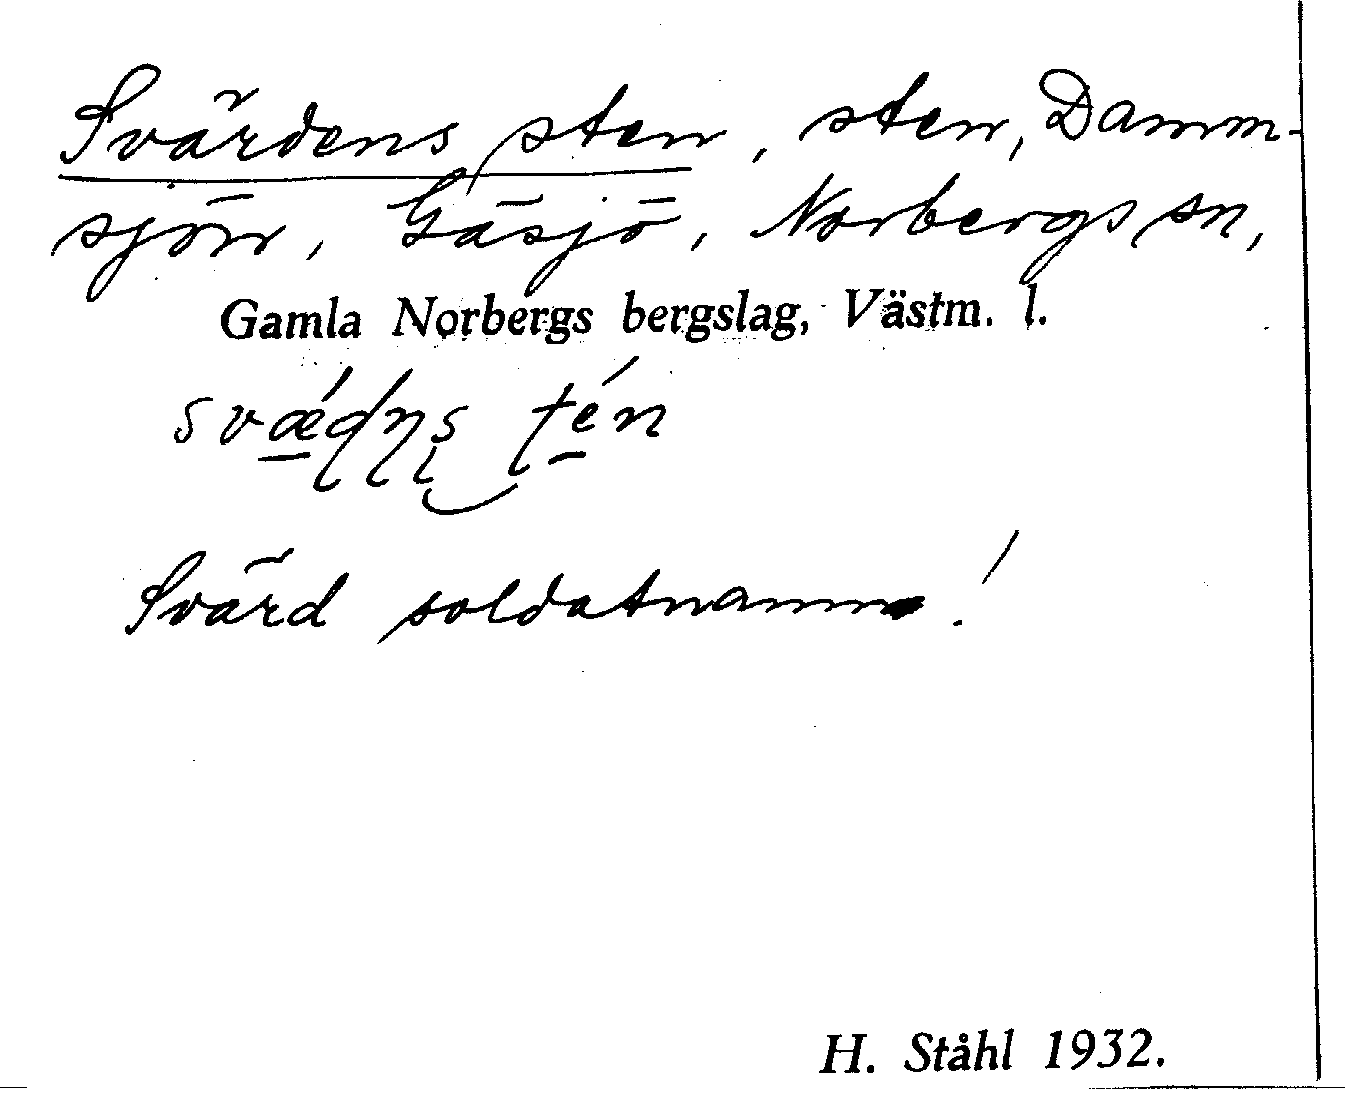 Svärdens sten, sten, Damm-
sjön, Gäsjö, Norbergs sn,
Gamla Norbergs bergslag, Västm. l.
Svärd soldatnamn!
H. Ståhl 1932.